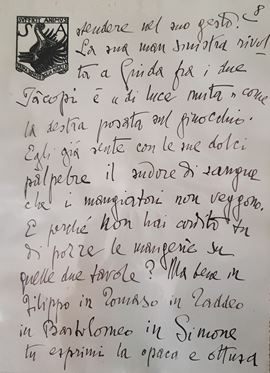 8
SVFFICIT ANIMVS
stendere nel suo gesto?
La sua man sinistra rivol
ta a Giuda fra i due
Jacopi è "di luce muta" come
la destra posata sul ginocchio.
Egli già sente con le sue dolci
palpebre il sudore di sangue
che i mangiatori non veggono.
E perché non hai ardito tu
di porre le mangerie su
quelle due tavole? Ma bene in
Filippo in Tomaso in Taddeo
in Bartolomeo in Simone
tu esprimi la opaca e ottusa